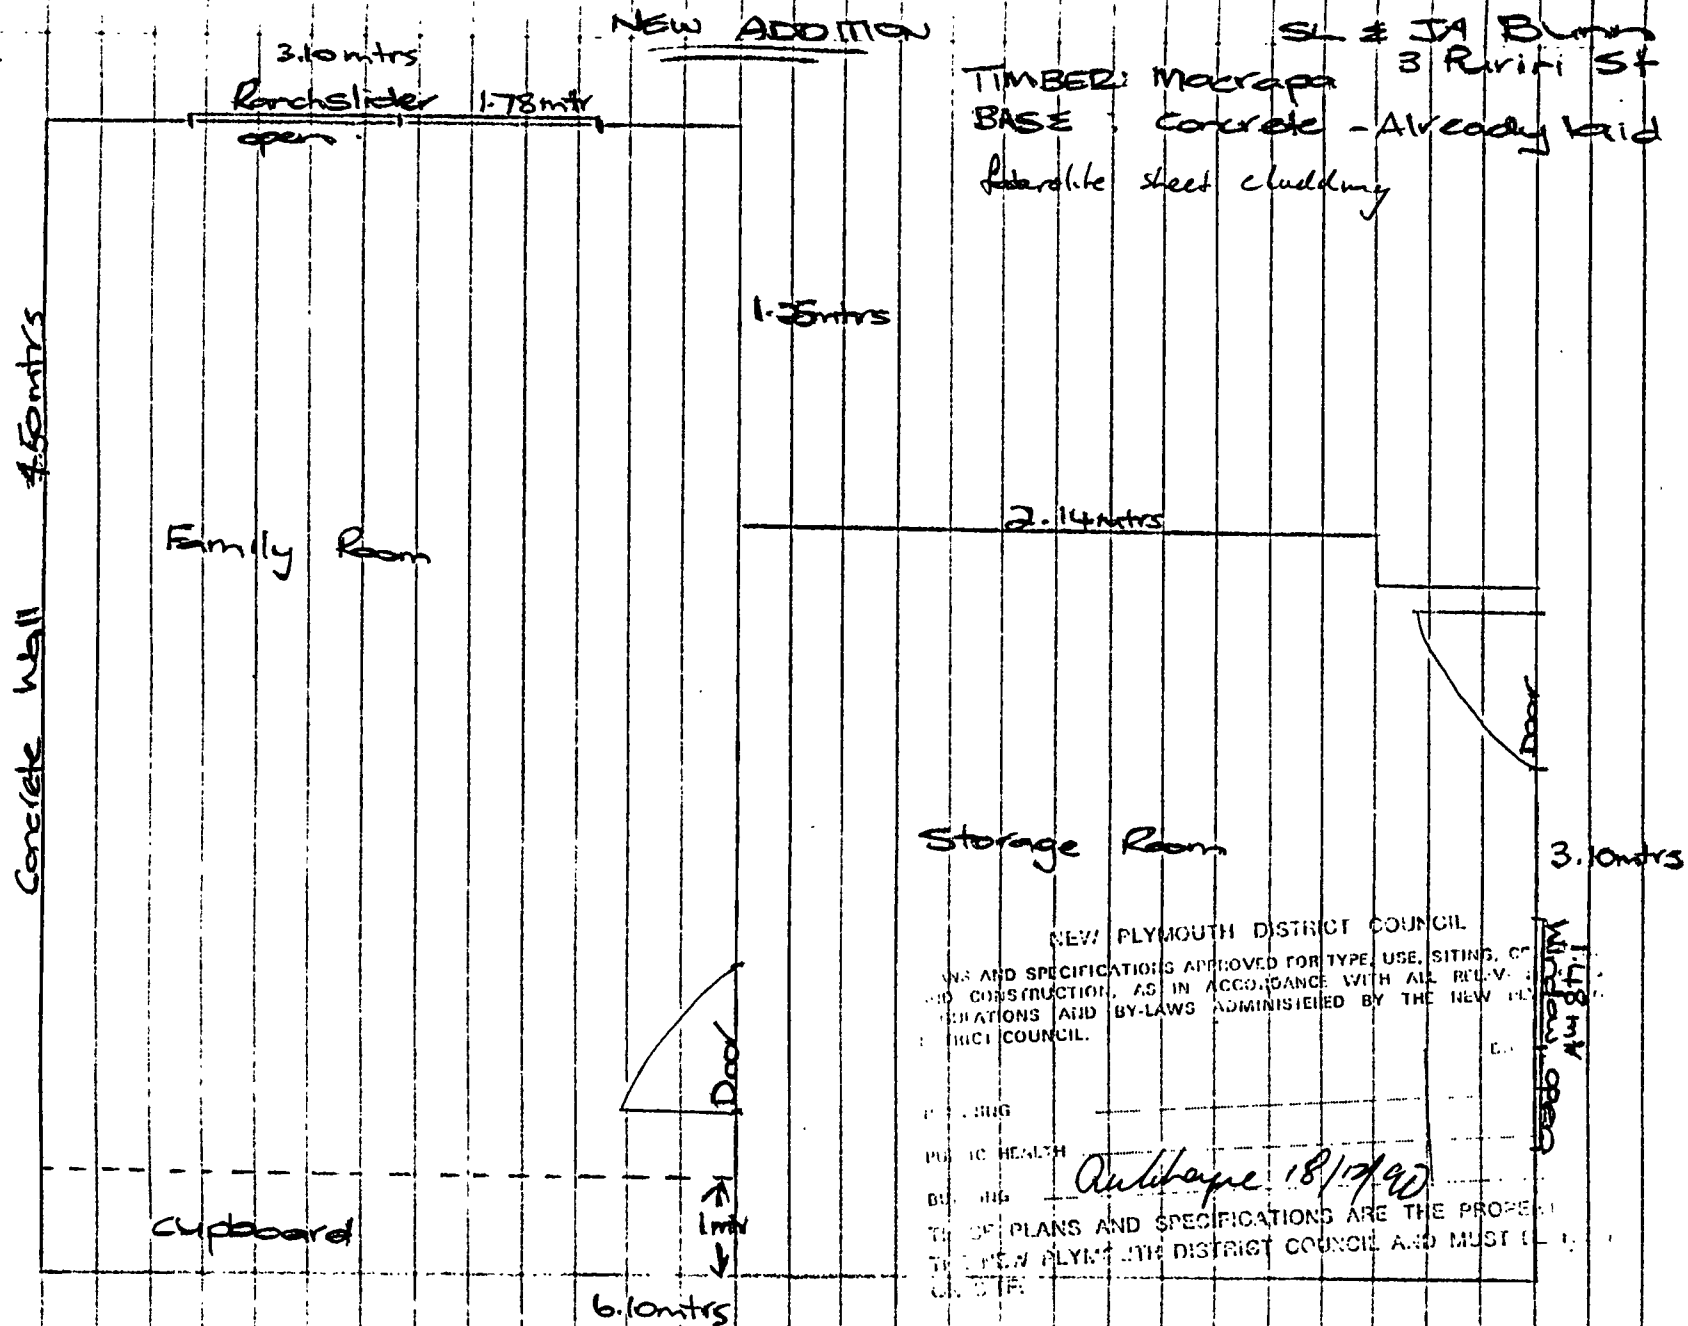 NEW ADDITION
SL & JA Bunn
3 Puriri St
TIMBER: Macrapa
BASE : Concrete - Already laid
sheet cladding
3.10mtrs
Ranchslider 1.78mtr
open
1.35mtrs
4.50mtrs
Concrete Wall
Family Room
2.14mtrs
Door
Storage Room
3.10mtrs
1.48mtr
Window - open
NEW PLYMOUTH DISTRICT COUNCIL
AND SPECIFICATIONS APPROVED FOR TYPE, USE, SITING,
CONSTRUCTION, AS IN ACCORDANCE WITH ALL
AND BY-LAWS ADMINISTERED BY THE NEW
COUNCIL.
Door
HEALTH
18/12/90
PLANS AND SPECIFICATIONS ARE THE
NEW PLYMOUTH DISTRICT COUNCIL AND MUST
cupboard
1mtr
6.10mtrs